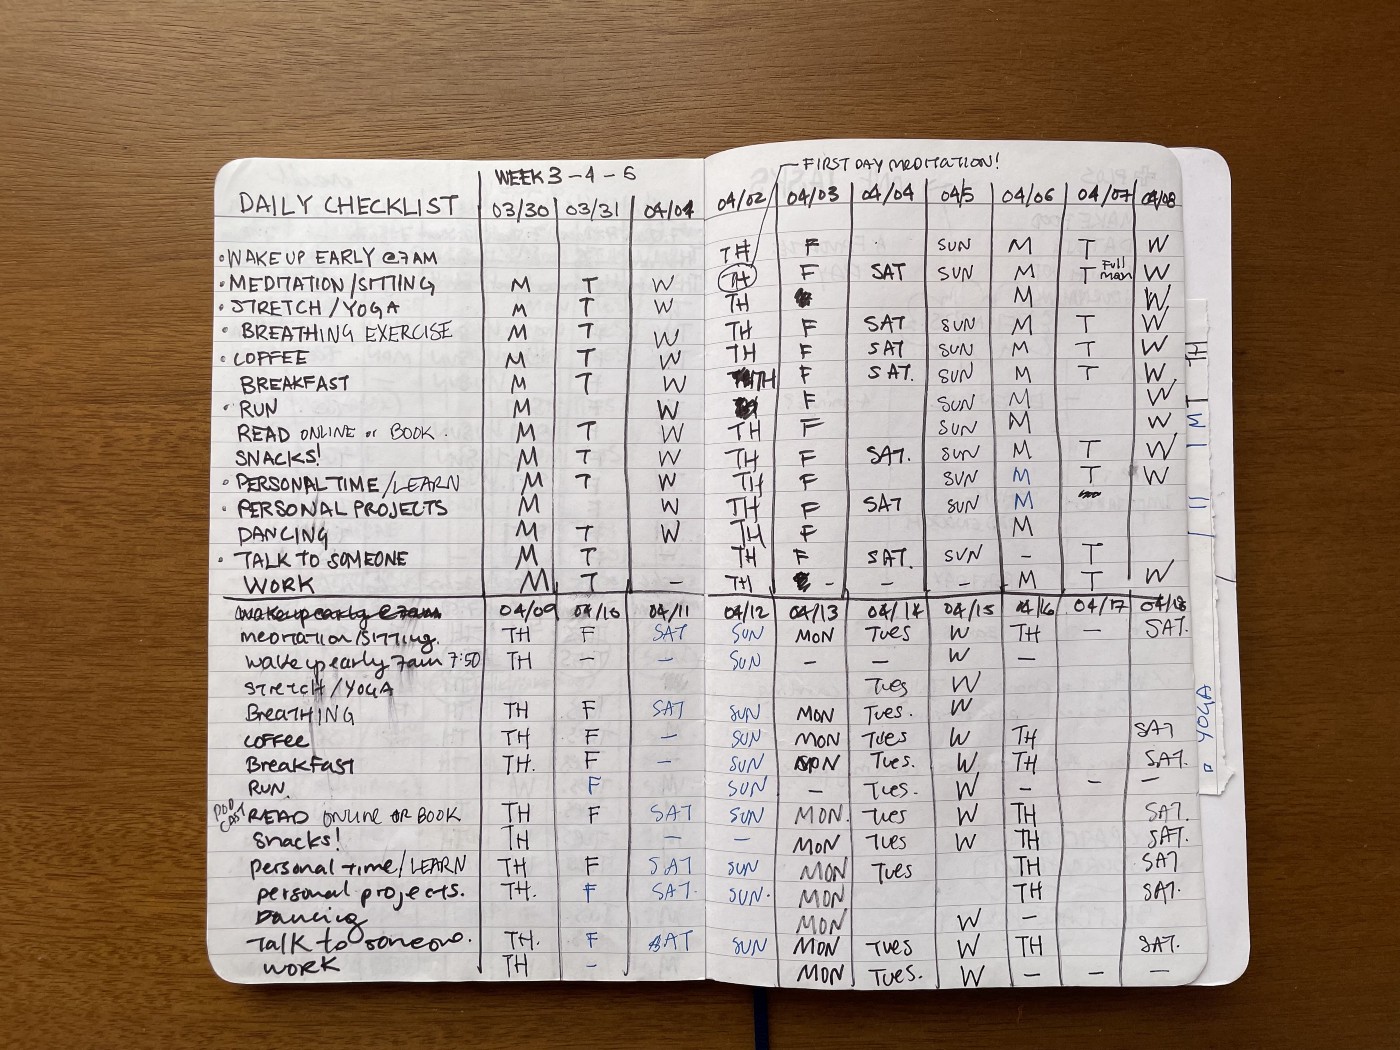 FIRST DAY MEDITATION!
WEEK 3 - 4 - 5
DAILY CHECKLIST 03/30 03/31 04/01 04/02 04/03 04/04 04/5 04/06 04/07 04/08
• WAKE UP EARLY @7AM TH F SUN M T W
• MEDITATION/SITTING M T W TH F SAT SUN M T Full moon W
• STRETCH/YOGA M T W TH M W
• BREATHING EXERCISE M T W TH F SAT SUN M T W
• COFFEE M T W TH F SAT SUN M T W
BREAKFAST M T W TH F SAT. SUN M T W
• RUN M W F SUN M W
READ ONLINE or BOOK. M T W TH F SUN M W
SNACKS! M T W TH F SAT. SUN M T W
• PERSONAL TIME/LEARN M T W TH F SUN M T W
• PERSONAL PROJECTS M W TH F SAT SUN M
DANCING M T W TH F M
• TALK TO SOMEONE M T - TH F SAT. SUN - T
WORK M T - TH - - - M T W
wake up early @ 7am 04/09 04/10 04/11 04/12 04/13 04/14 04/15 04/16 04/17 04/18
meDITATION/SITTING. TH F SAT SUN MON TUES W TH - SAT.
wake up early 7am 7:50 TH - - SUN - - W -
STRETCH/YOGA TUES W
BREATHING TH F SAT SUN MON TUES. W
coffee TH F - SUN MON TUES W TH SAT
BreakFAST TH. F - SUN MON TUES. W TH SAT.
RUN. F SUN - TUES. W - - -
POD CAST READ ONLINE OR BOOK TH F SAT SUN MON. TUES W TH SAT.
Snacks! TH - - MON TUES W TH SAT.
personal time/LEARN TH F SAT SUN MON TUES TH SAT
personal projects. TH. F SAT. SUN. MON TH SAT.
Dancing MON W -
Talk to someone. TH. F SAT SUN MON TUES W TH SAT.
WORK TH - MON TUES. W - - -
TH
T
M
YOGA